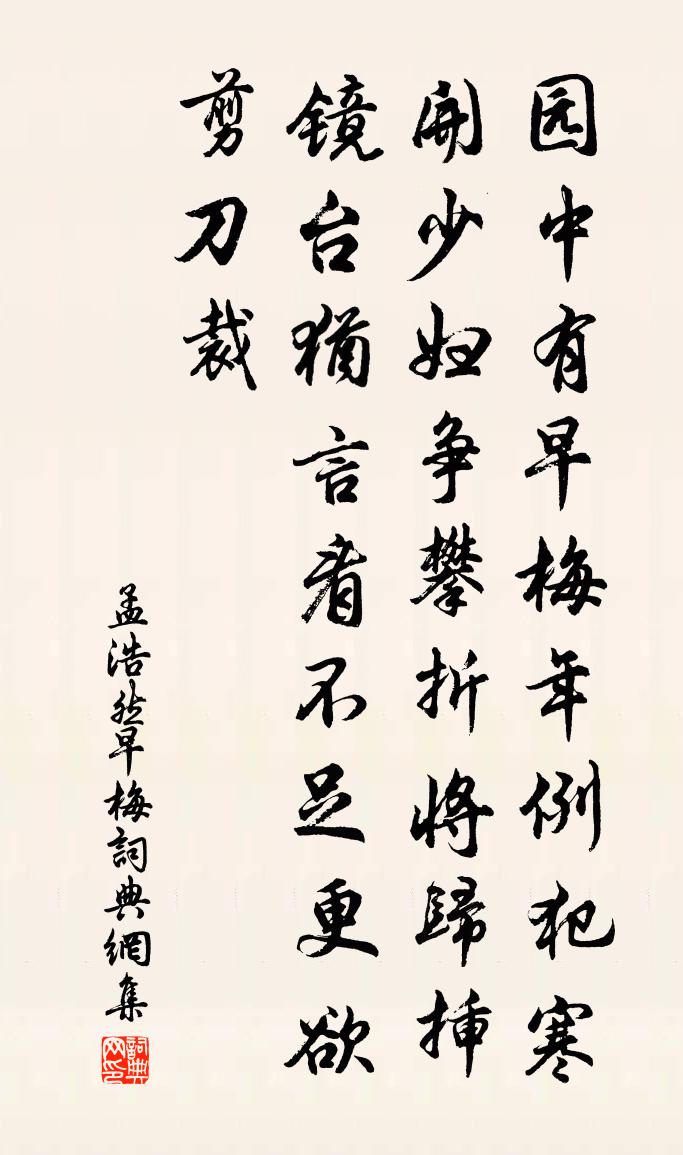 园中有早梅年例犯寒
開少妇争攀折将歸插
镜台猶言看不足更欲
剪刀裁
孟浩然早梅詞典網集
詞典网印